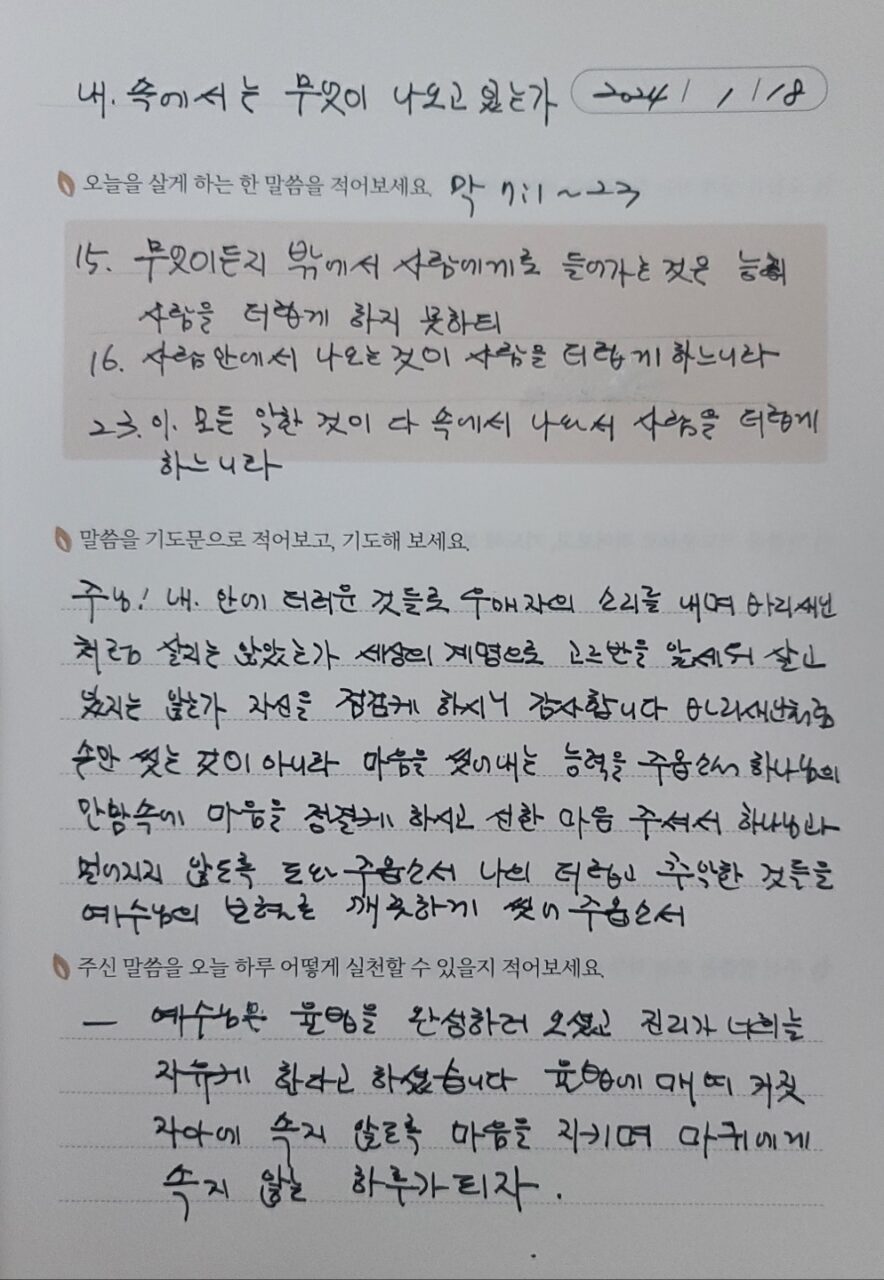 내. 속에서는 무엇이 나오고 있는가 2024 / 1 / 18
오늘을 살게 하는 한 말씀을 적어보세요. 막 7:1~23
15. 무엇이든지 밖에서 사람에게로 들어가는 것은 능히
사람을 더럽게 하지 못하되
16. 사람 안에서 나오는 것이 사람을 더럽게 하느니라
23. 이. 모든 악한 것이 다 속에서 나와서 사람을 더럽게
하느니라
말씀을 기도문으로 적어보고, 기도해 보세요.
주님! 내. 안에 더러운 것들로 우애자의 소리를 내며 바리새인
처럼 살지는 않았는가 세상의 계명으로 고르반을 앞세워 살고
있지는 않는가 자신을 점검케 하시니 감사합니다 바리새인처럼
손만 씻는 것이 아니라 마음을 씻어내는 능력을 주옵소서 하나님의
만밤속에 마음을 정결케 하시고 선한 마음 주셔서 하나님과
멀어지지 않도록 도와 주옵소서 나의 더럽고 추악한 것들을
예수님의 보혈로 깨끗하게 씻어 주옵소서
주신 말씀을 오늘 하루 어떻게 실천할 수 있을지 적어보세요.
— 예수님은 율법을 완성하러 오셨고 진리가 너희를
자유케 한다고 하셨습니다 율법에 매여 거짓
자아에 속지 않도록 마음을 지키며 마귀에게
속지 않는 하루가 되자.